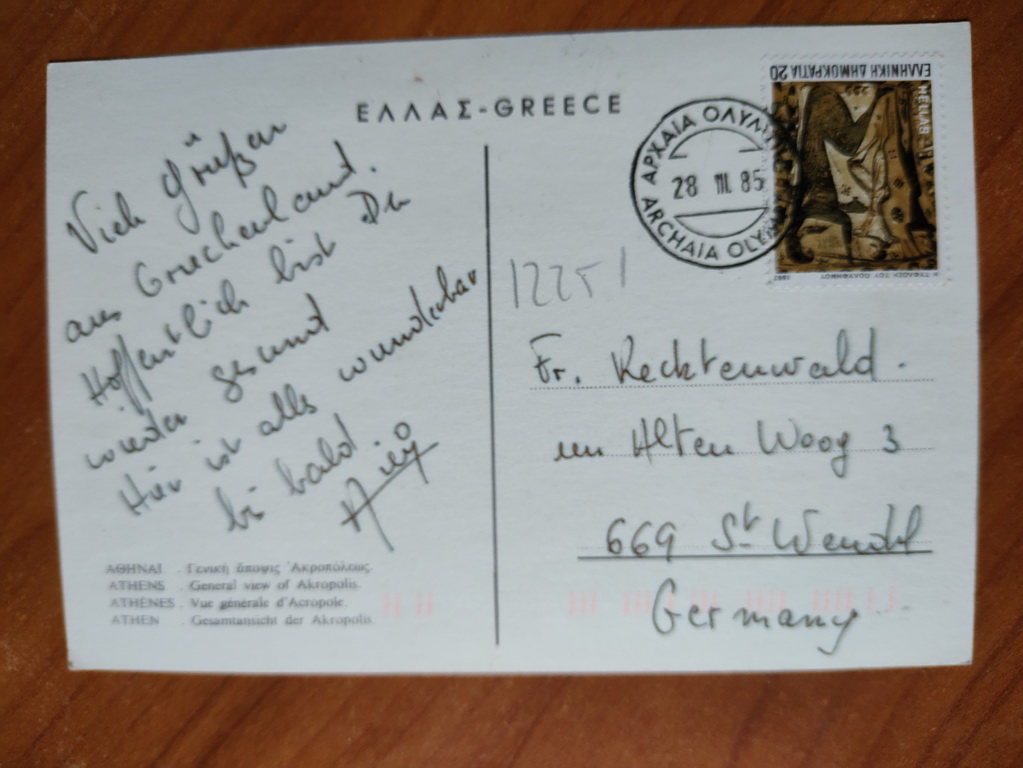 ΕΛΛΑΣ-GREECE
Viele Grüßen
aus Griechenland.
Hoffentlich bist Du
wieder gesund
Hier ist alles wunderbar
bis bald
ΑΡΧΑΙΑ ΟΛΥΜ
28 III. 85
ARCHAIA OLYM
ΕΛΛΗΝΙΚΗ ΔΗΜΟΚΡΑΤΙΑ 20
HELLAS
Η ΤΥΦΛΩΣΗ ΤΟΥ ΠΟΛΥΦΗΜΟΥ
1983
12251
Fr. Recktenwald.
im Alten Woog 3
669 St Wendel
Germany
ΑΘΗΝΑΙ . Γενική ἄποψις Ἀκροπόλεως.
ATHENS . General view of Akropolis.
ATHENES . Vue générale d'Acropole.
ATHEN . Gesamtansicht der Akropolis.